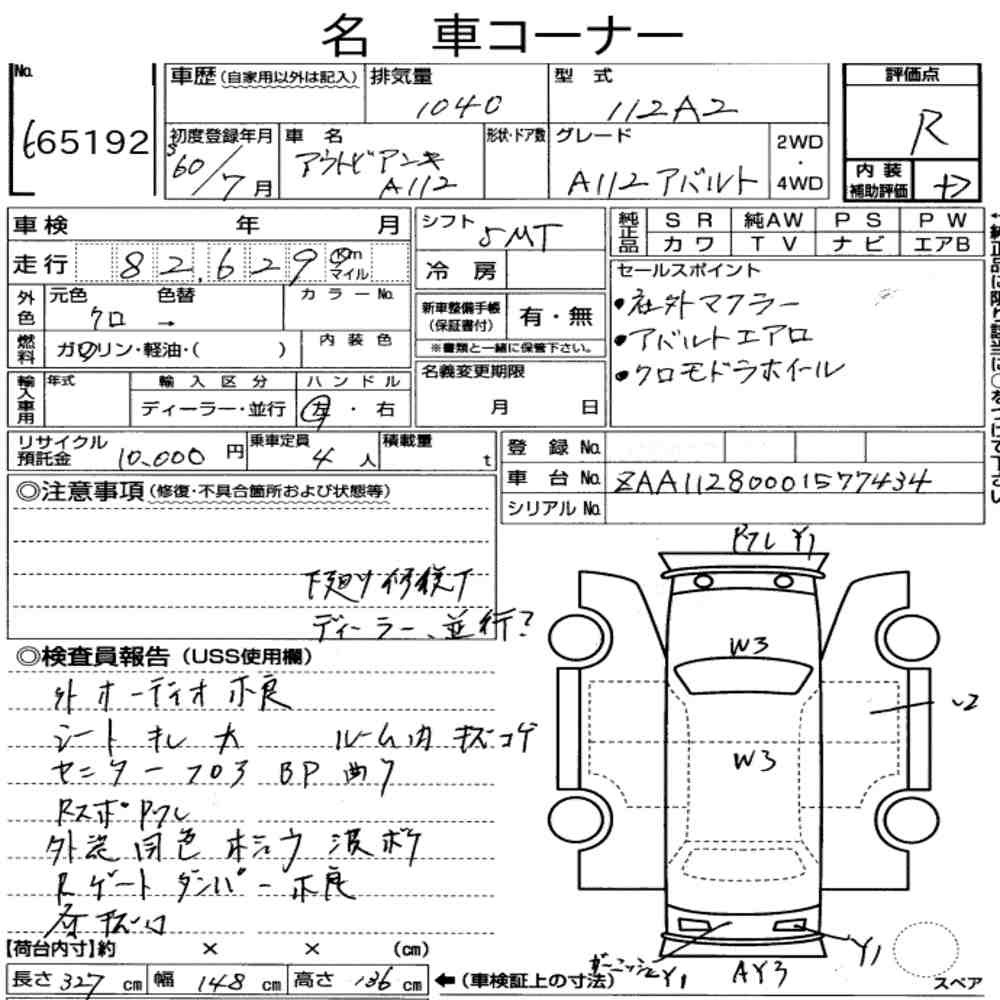 名 車コーナー
No.
65192
車歴(自家用以外は記入)
排気量
1040
型 式
112A2
評価点
R
初度登録年月
S60/7月
車 名
アウトビアンキ
A112
形状・ドア数
グレード
A112 アバルト
2WD
・
4WD
内 装
補助評価
+D
車検 年 月
走行 82,629 Km マイル
シフト 5MT
冷 房
純正品
SR 純AW PS PW
カワ TV ナビ エアB
セールスポイント
・社外マフラー
・アバルトエアロ
・クロモドラホイール
外色
元色 色替
クロ →
カラーNo.
燃料
ガソリン・軽油・( )
内装色
新車整備手帳
(保証書付)
有・無
※書類と一緒に保管下さい。
名義変更期限
月 日
輸入車用
年式
輸入区分
ディーラー・並行
ハンドル
左・右
リサイクル
預託金 10,000 円
乗車定員
4 人
積載量
t
登 録 No.
車 台 No. ZAA11280001577434
シリアル No.
◎注意事項(修復・不具合箇所および状態等)
下廻り修復下
ディーラー、並行?
◎検査員報告(USS使用欄)
外オーディオ不良
シートキレ大 ルーム内キズコゲ
センターフロア BP曲り
RスポPワレ
外装同色ホシュウ波ボケ
Rゲートダンパー不良
Pワレ Y1
W3
W3
U2
ガーニッシュY1
AY3
Y1
スペア
【荷台内寸】約 × × (cm)
長さ 327 cm 幅 148 cm 高さ 136 cm
←(車検証上の寸法)